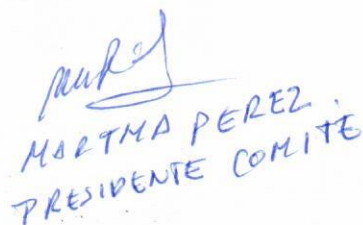 MARTHA PEREZ
PRESIDENTE COMITÉ